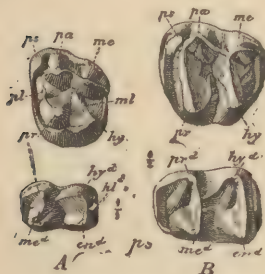 ps pa me
pl ml
pr hy
hyᵈ
hlᵈ
meᵈ enᵈ
A
ps pa me
pr hy
prᵈ hyᵈ
meᵈ enᵈ
B